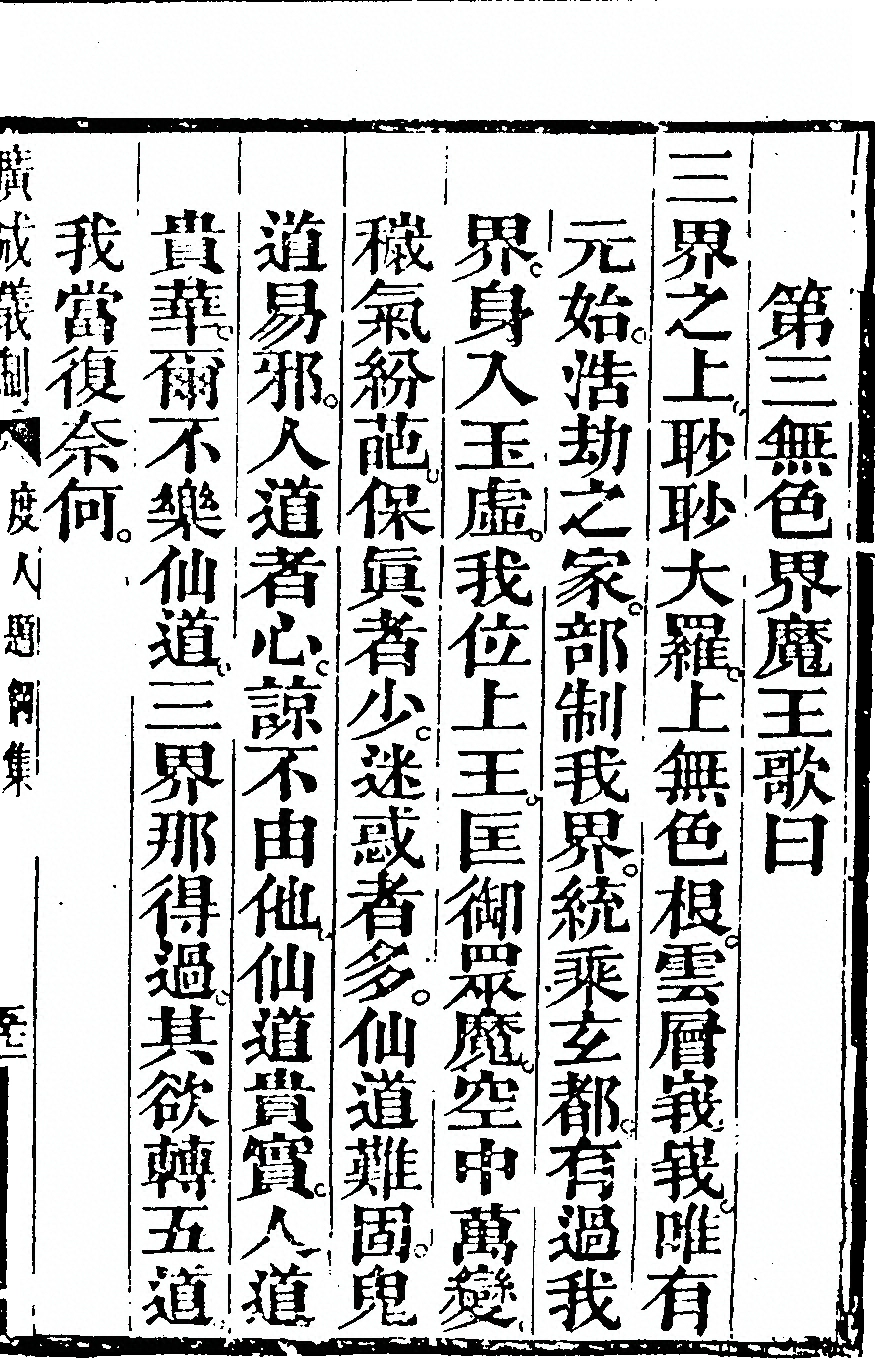 第三無色界魔王歌曰
三界之上眇眇大羅上無色根雲層峩峩唯有
元始浩劫之家部制我界統乘玄都有過我
界身入玉虛我位上王匡御眾魔空中萬變
穢氣紛葩保眞者少迷惑者多仙道難固鬼
道易邪人道者心諒不由他仙道貴實人道
貴華爾不樂仙道三界那得過其欲轉五道
我當復奈何
廣成儀制 度人題綱集